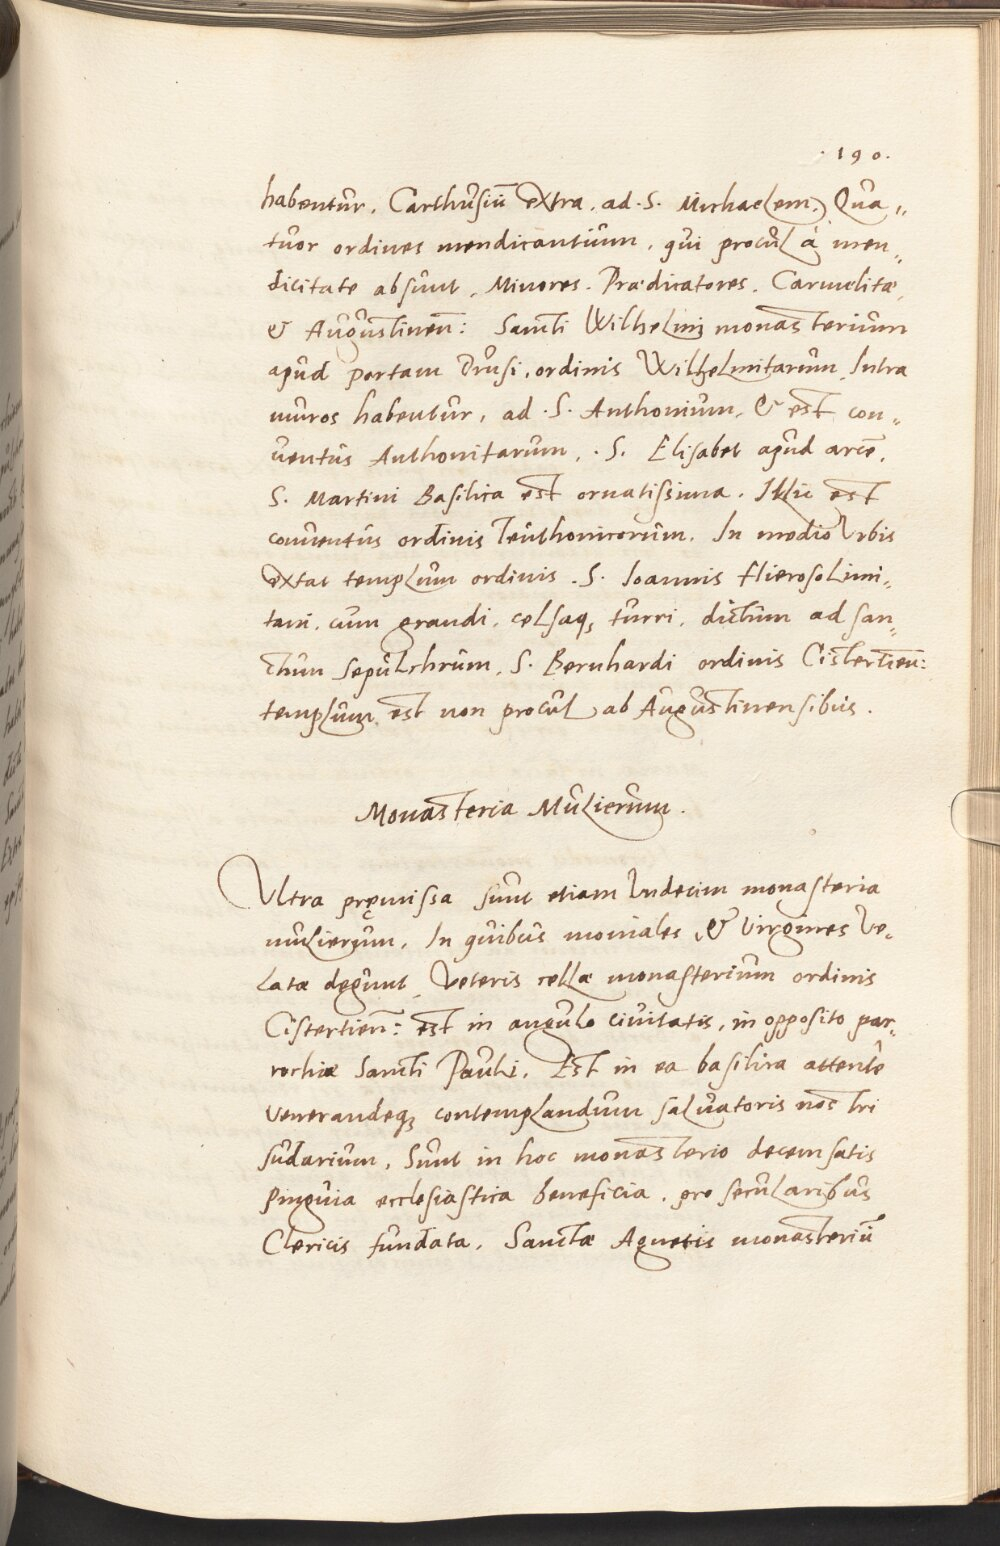 .190.
habentur. Carthusiū extra, ad .S. Michaelem.) Qua„
tuor ordines mendicantium, qui procul à men„
dicitate absunt, Minores. Prædicatores. Carmelitæ,
& Augustinen̄: Sancti Wilhelmi monasterium
apud portam Drusi, ordinis Wilhelmitarum. Intra
muros habentur, ad .S. Anthonium, & est con„
uentus Anthonitarum, .S. Elisabet apud arcē.
S. Martini Basilica est ornatissima. Illic est
conuentus ordinis Teuthonicorum. In medio Vrbis
extat templum ordinis .S. Ioannis Hierosolimi„
tani, cum grandi, celsaq; turri, dictum ad san„
ctum Sepulchrum, S. Bernhardi ordinis Cistertien̄:
templum est non procul ab Augustinensibus.
Monasteria Mulierum.
Vltra pręmissa sunt etiam Vndecim monasteria
mulierum, In quibus moniales, & Virgines Ve„
latæ degunt, Veteris cellæ monasterium ordinis
Cistertien̄: est in angulo ciuitatis, in opposito par„
rochiæ Sancti Pauli. Est in ea basilica attentè
venerandeq; contemplandum saluatoris nostri
sudarium, Sunt in hoc monasterio decem satis
pinguia ecclesiastica beneficia, pro secularibus
Clericis fundata. Sanctæ Agnetis monasteriū